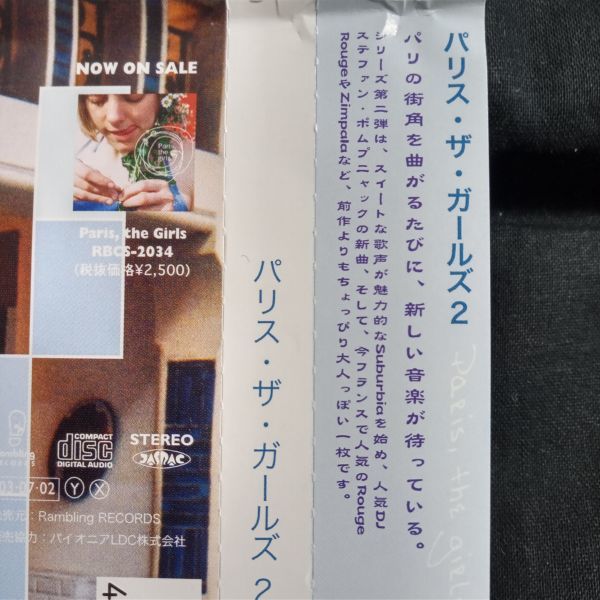 パリス・ザ・ガールズ2
パリの街角を曲がるたびに、新しい音楽が待っている。
シリーズ第二弾は、スイートな歌声が魅力的なSuburbiaを始め、人気DJ
ステファン・ポムプニャックの新曲、そして、今フランスで人気のRouge
RougeやZimpalaなど、前作よりもちょっぴり大人っぽい一枚です。
Paris the girl
パリス・ザ・ガールズ 2
NOW ON SALE
Paris, the Girls
RBCS-2034
(税抜価格¥2,500)
COMPACT
disc
DIGITAL AUDIO
STEREO
JASRAC
03-07-02 Y X
売元:Rambling RECORDS
売協力:パイオニアLDC株式会社
4